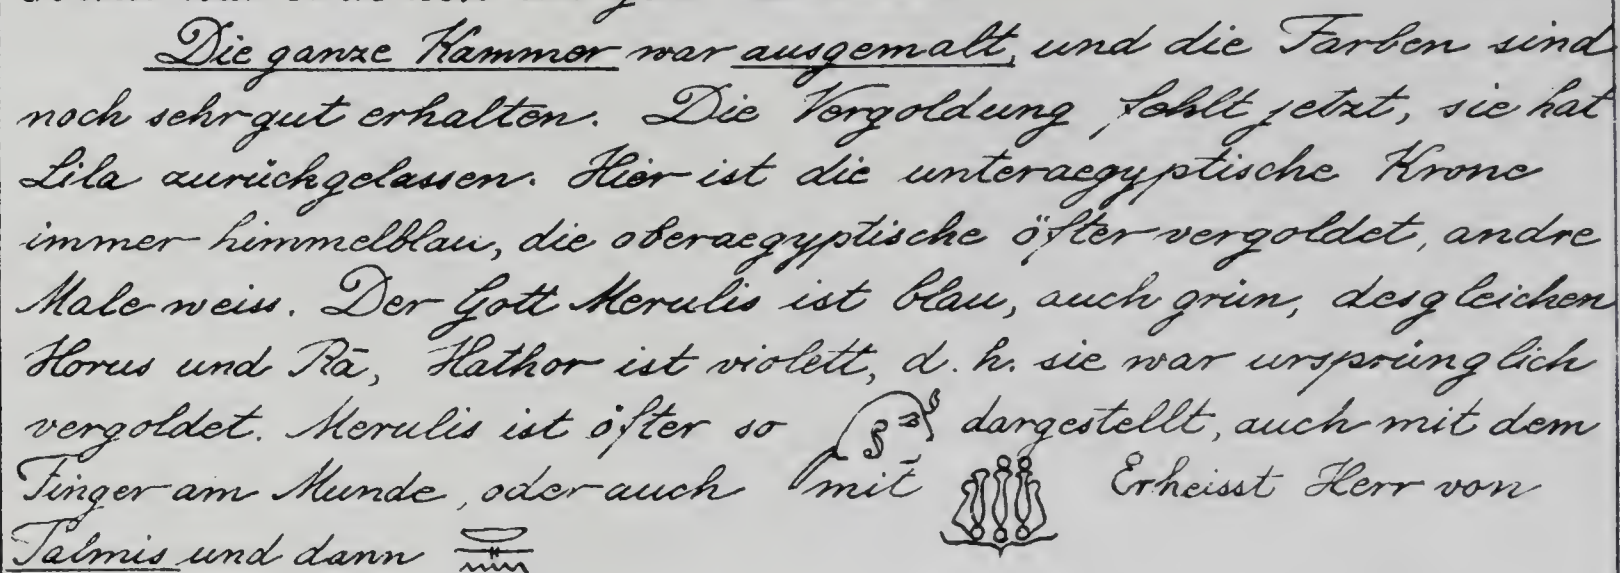 Die ganze Kammer war ausgemalt, und die Farben sind
noch sehr gut erhalten. Die Vergoldung fehlt jetzt, sie hat
Lila zurückgelassen. Hier ist die unteraegyptische Krone
immer himmelblau, die oberaegyptische öfter vergoldet, andre
Male weiss. Der Gott Merulis ist blau, auch grün, desgleichen
Horus und Rā, Hathor ist violett, d. h. sie war ursprünglich
vergoldet. Merulis ist öfter so dargestellt, auch mit dem
Finger am Munde, oder auch mit Er heisst Herr von
Talmis und dann